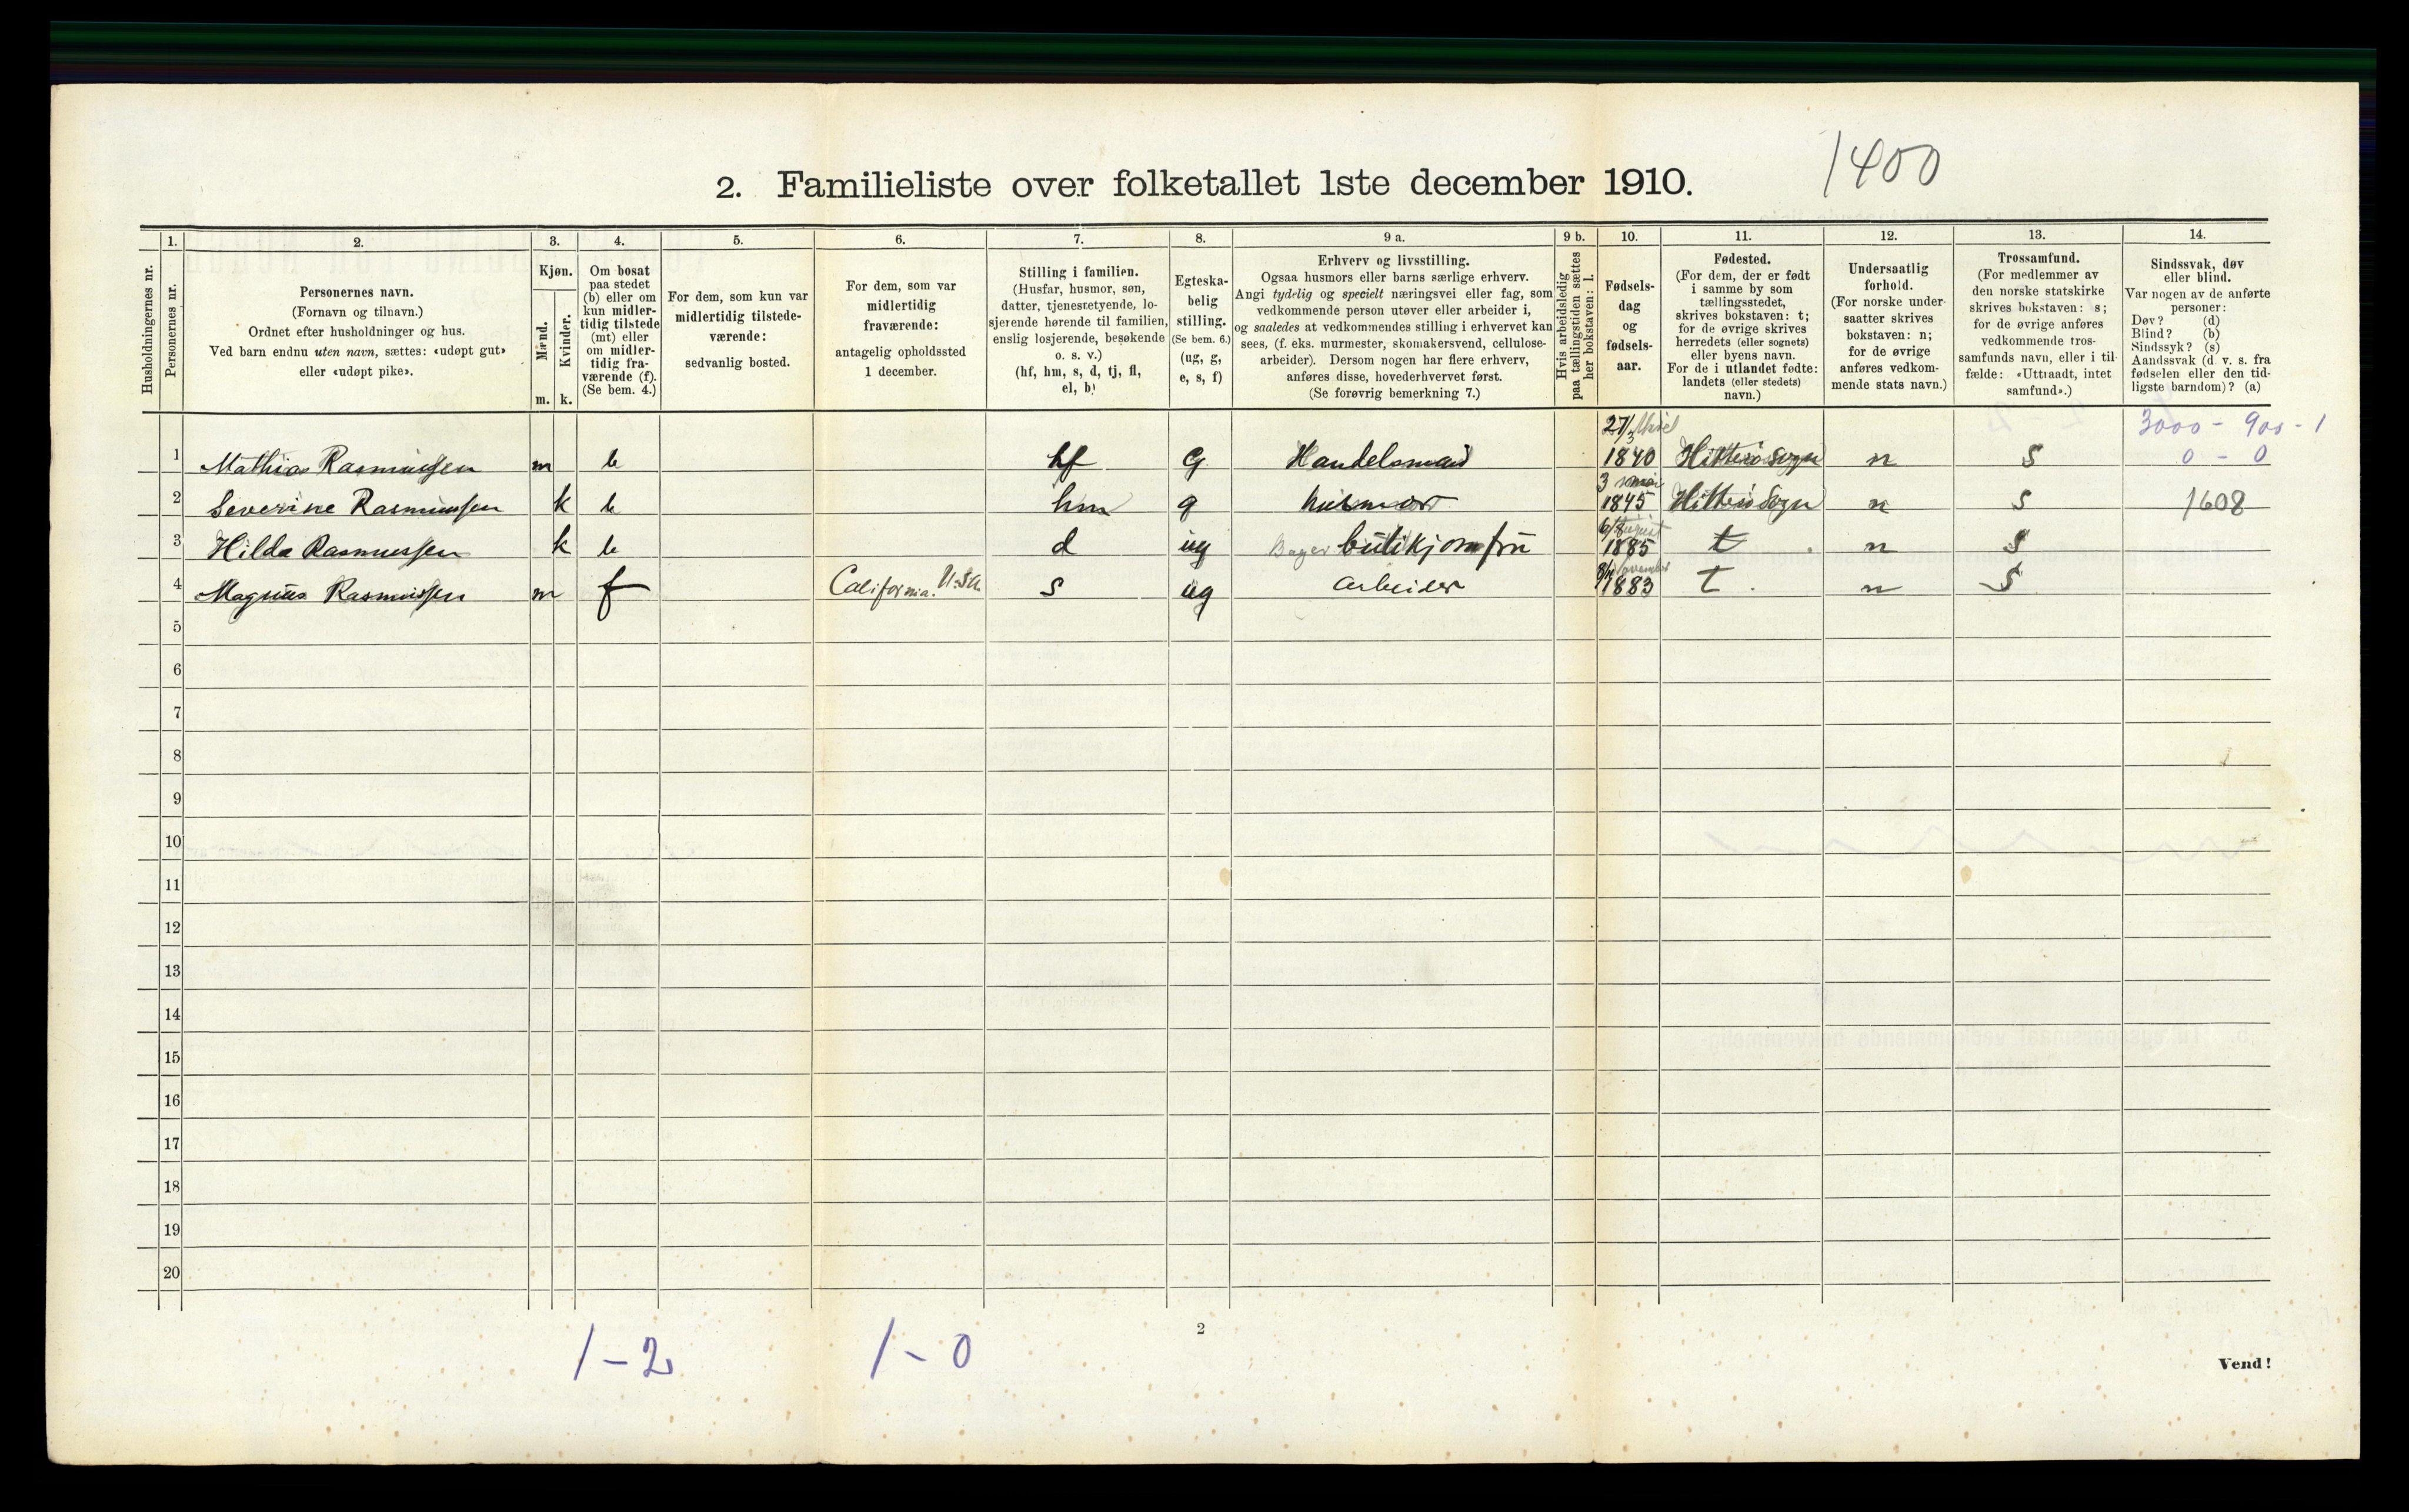 1400
2. Familieliste over folketallet 1ste december 1910.
Husholdningernes nr.
1. Personernes nr.
2. Personernes navn. (Fornavn og tilnavn.) Ordnet efter husholdninger og hus. Ved barn endnu uten navn, sættes: «udøpt gut» eller «udøpt pike».
3. Kjøn. Mænd. m. Kvinder. k.
4. Om bosat paa stedet (b) eller om kun midlertidig tilstede (mt) eller om midlertidig fraværende (f). (Se bem. 4.)
5. For dem, som kun var midlertidig tilstedeværende: sedvanlig bosted.
6. For dem, som var midlertidig fraværende: antagelig opholdssted 1 december.
7. Stilling i familien. (Husfar, husmor, søn, datter, tjenestetyende, losjerende hørende til familien, enslig losjerende, besøkende o. s. v.) (hf, hm, s, d, tj, fl, el, b)
8. Egteskabelig stilling. (Se bem. 6.) (ug, g, e, s, f)
9 a. Erhverv og livsstilling. Ogsaa husmors eller barns særlige erhverv. Angi tydelig og specielt næringsvei eller fag, som vedkommende person utøver eller arbeider i, og saaledes at vedkommendes stilling i erhvervet kan sees, (f. eks. murmester, skomakersvend, cellulosearbeider). Dersom nogen har flere erhverv, anføres disse, hovederhvervet først. (Se forøvrig bemerkning 7.)
9 b. Hvis arbeidsledig paa tællingstiden sættes her bokstaven: l.
10. Fødselsdag og fødselsaar.
11. Fødested. (For dem, der er født i samme by som tællingsstedet, skrives bokstaven: t; for de øvrige skrives herredets (eller sognets) eller byens navn. For de i utlandet fødte: landets (eller stedets) navn.)
12. Undersaatlig forhold. (For norske undersaatter skrives bokstaven: n; for de øvrige anføres vedkommende stats navn.)
13. Trossamfund. (For medlemmer av den norske statskirke skrives bokstaven: s; for de øvrige anføres vedkommende trossamfunds navn, eller i tilfælde: «Uttraadt, intet samfund».)
14. Sindssvak, døv eller blind. Var nogen av de anførte personer: Døv? (d) Blind? (b) Sindssyk? (s) Aandssvak (d. v. s. fra fødselen eller den tidligste barndom)? (a)
3000 - 900 - 1
1 Mathias Rasmussen m b hf G Handelsmand 27/3 1840 Hitterø Sogn n S 0 - 0
2 Severine Rasmussen k b hm g husmor 3 mai 1845 Hitterø Sogn n S 1608
3 Hilda Rasmussen k b d ug Bager butikjomfru 6/8 August 1885 t n S
4 Magnus Rasmussen m f California. U.S.A. s ug arbeider 8/11 November 1883 t. n S
5
6
7
8
9
10
11
12
13
14
15
16
17
18
19
20
1 - 2 1 - 0
2
Vend!